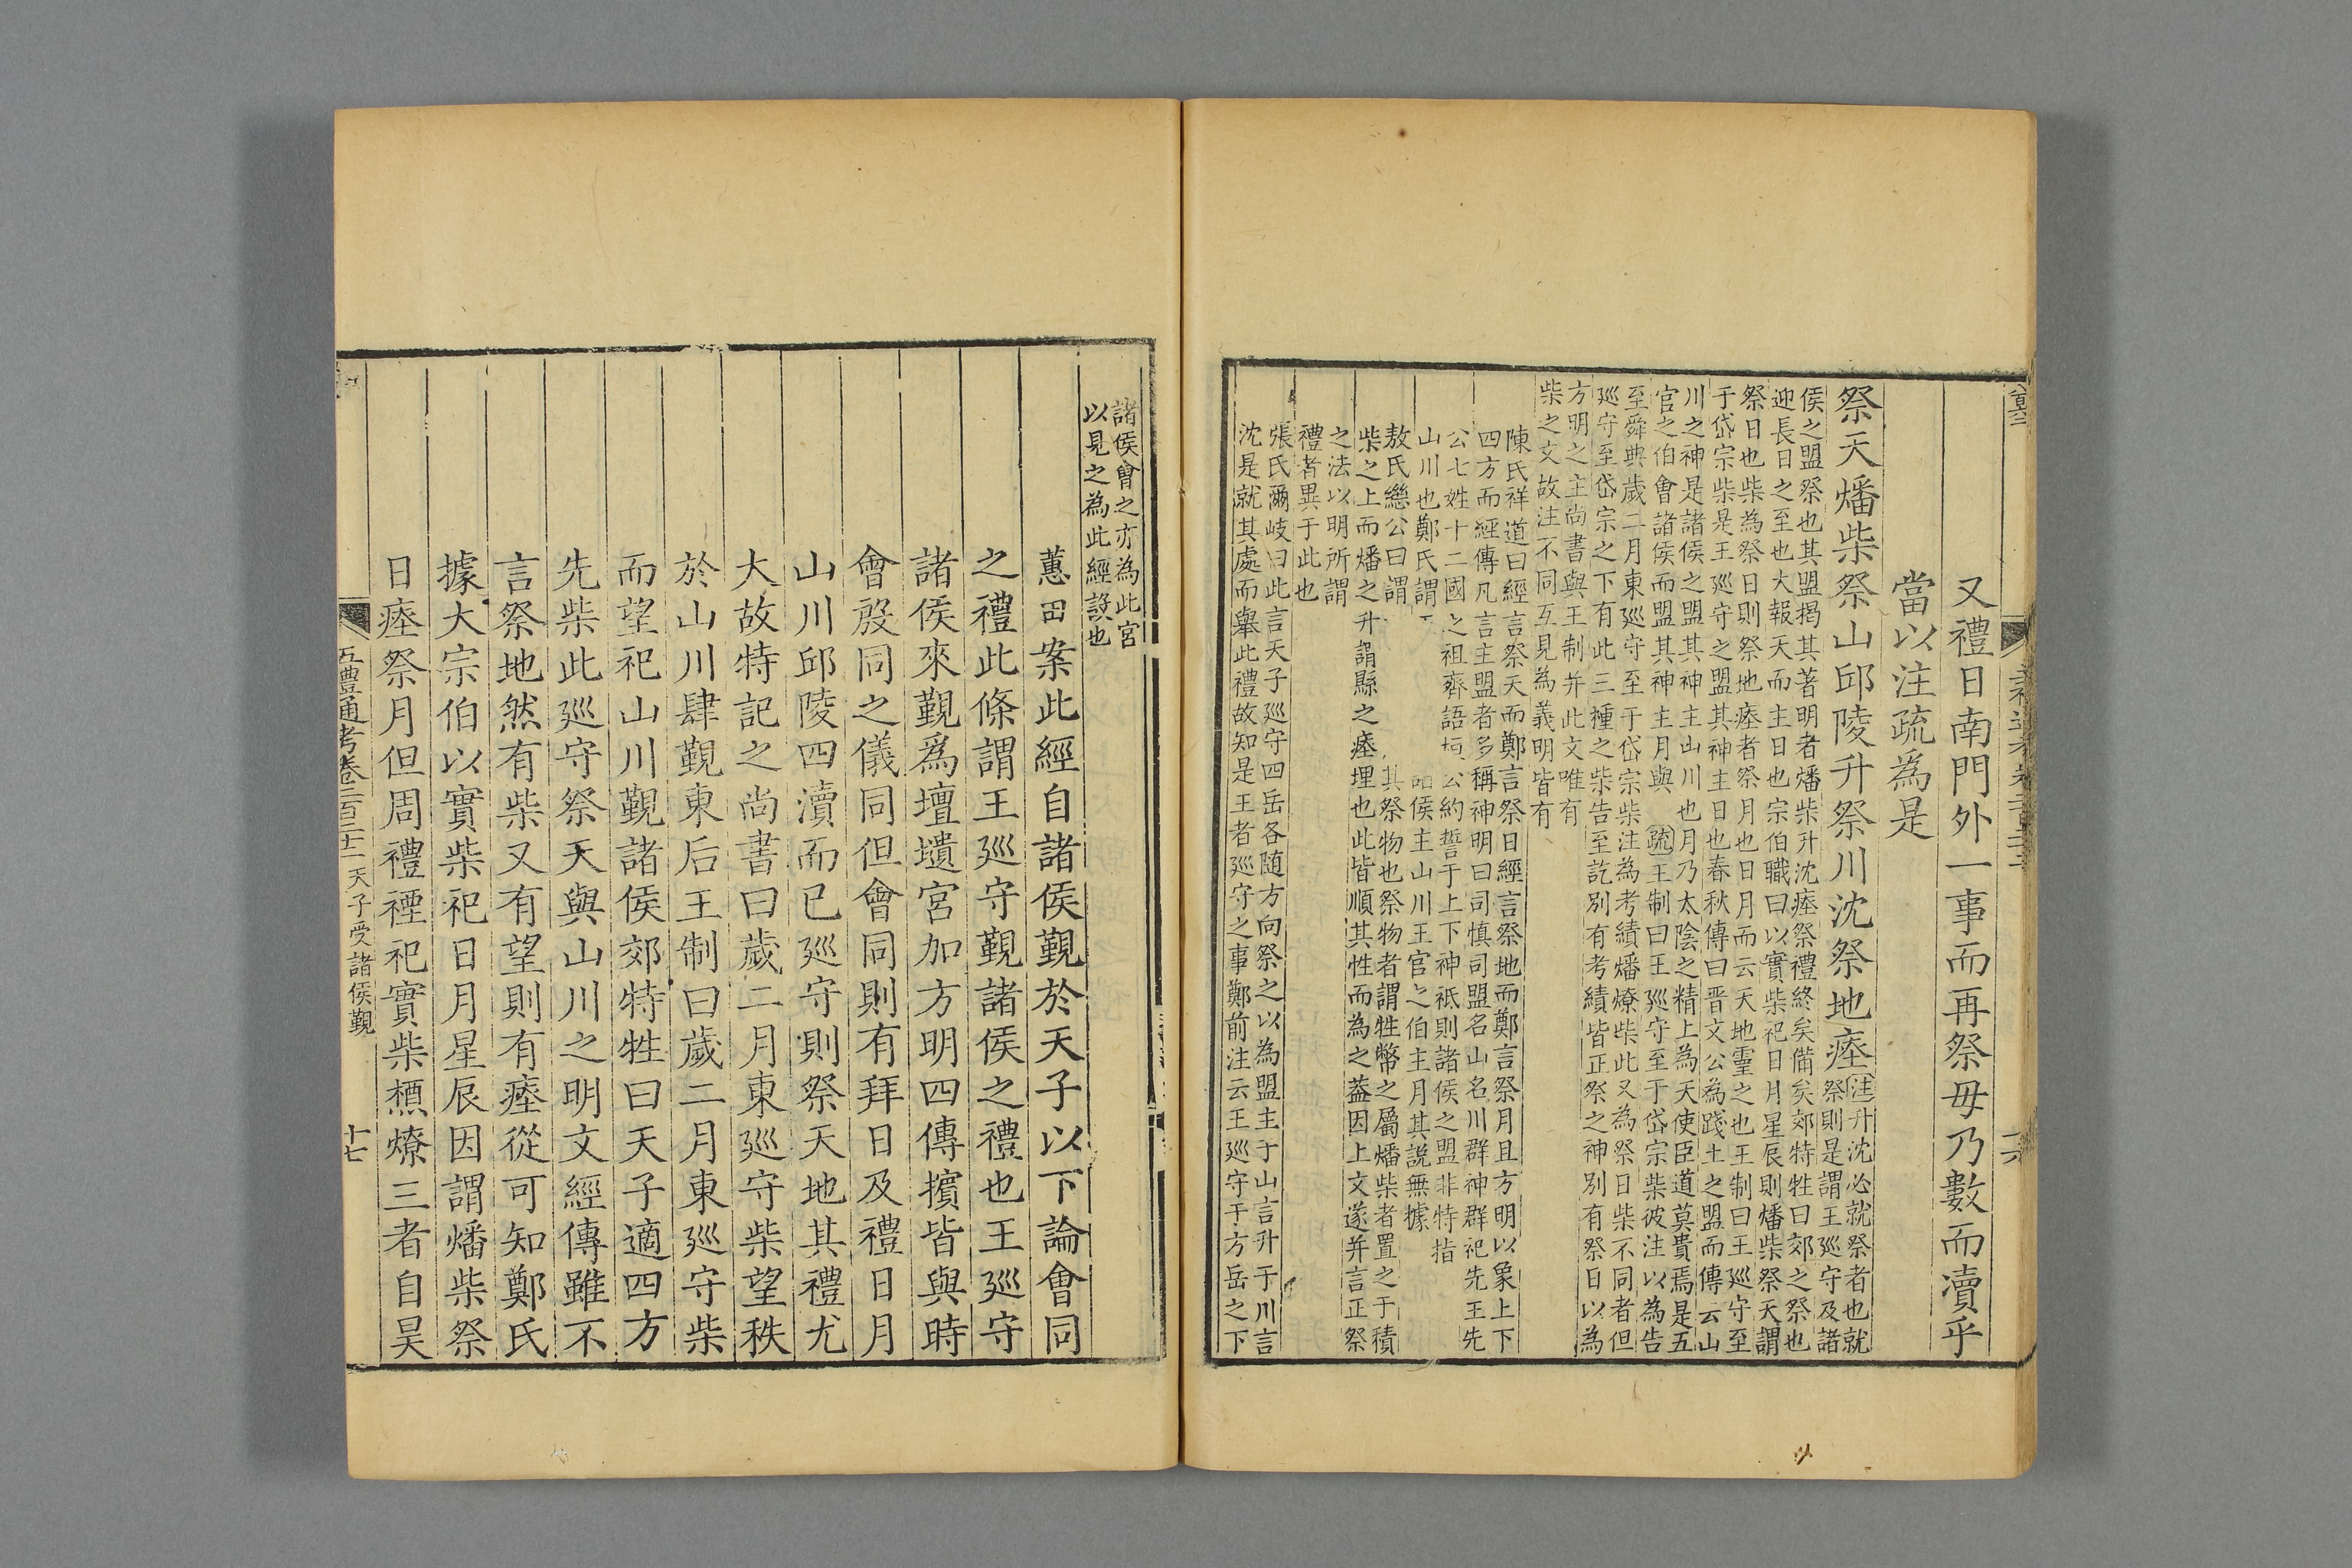 又禮日南門外一事而再祭毋乃數而瀆乎
當以注疏為是
祭天燔柴祭山邱陵升祭川沈祭地瘞
注升沈必就祭者也就
祭則是謂王廵守及諸
侯之盟祭也其盟揭其著明者燔柴升沈瘞祭禮終矣備矣郊特牲曰郊之祭也
迎長日之至也大報天而主日也宗伯職曰以實柴祀日月星辰則燔柴祭天謂
祭日也柴為祭日則祭地瘞者祭月也日月而云天地靈之也王制曰王廵守至
于岱宗柴是王廵守之盟其神主日也春秋傳曰晋文公為踐土之盟而傳云山
川之神是諸侯之盟其神主山川也月乃太陰之精上為天使臣道莫貴焉是五
官之伯會諸侯而盟其神主月與
疏王制曰王廵守至于岱宗柴彼注以為告
至舜典歲二月東廵守至于岱宗柴注為考績燔燎柴此又為祭日柴不同者但
廵守至岱宗之下有此三種之柴告至訖別有考績皆正祭之神別有祭日以為
方明之主尚書與王制并此文唯有
柴之文故注不同互見為義明皆有
陳氏祥道曰經言祭天而鄭言祭日經言祭地而鄭言祭月且方明以象上下
四方而經傳凡言主盟者多稱神明曰司慎司盟名山名川群神群祀先王先
公七姓十二國之祖齊語公約誓于上下神祗則諸侯之盟非特指
山川也鄭氏謂侯主山川王官之伯主月其說無據
敖氏繼公曰謂其祭物也祭物者謂牲幣之屬燔柴者置之于積
柴之上而燔之升謂縣之瘞埋也此皆順其性而為之葢因上文遂并言正祭
之法以明所謂
禮者異于此也
張氏爾岐曰此言天子廵守四岳各随方向祭之以為盟主于山言升于川言
沈是就其處而舉此禮故知是王者廵守之事鄭前注云王廵守于方岳之下
諸侯會之亦為此宮
以見之為此經設也
蕙田案此經自諸侯覲於天子以下論會同
之禮此條謂王廵守覲諸侯之禮也王廵守
諸侯來覲爲壇壝宮加方明四傳擯皆與時
會殷同之儀同但會同則有拜日及禮日月
山川邱陵四瀆而已廵守則祭天地其禮尤
大故特記之尚書曰歲二月東廵守柴望秩
於山川肆覲東后王制曰歲二月東廵守柴
而望祀山川覲諸侯郊特牲曰天子適四方
先柴此廵守祭天與山川之明文經傳雖不
言祭地然有柴又有望則有瘞從可知鄭氏
據大宗伯以實柴祀日月星辰因謂燔柴祭
日瘞祭月但周禮禋祀實柴槱燎三者自昊
五禮通考卷二百二十一天子受諸侯覲
十七